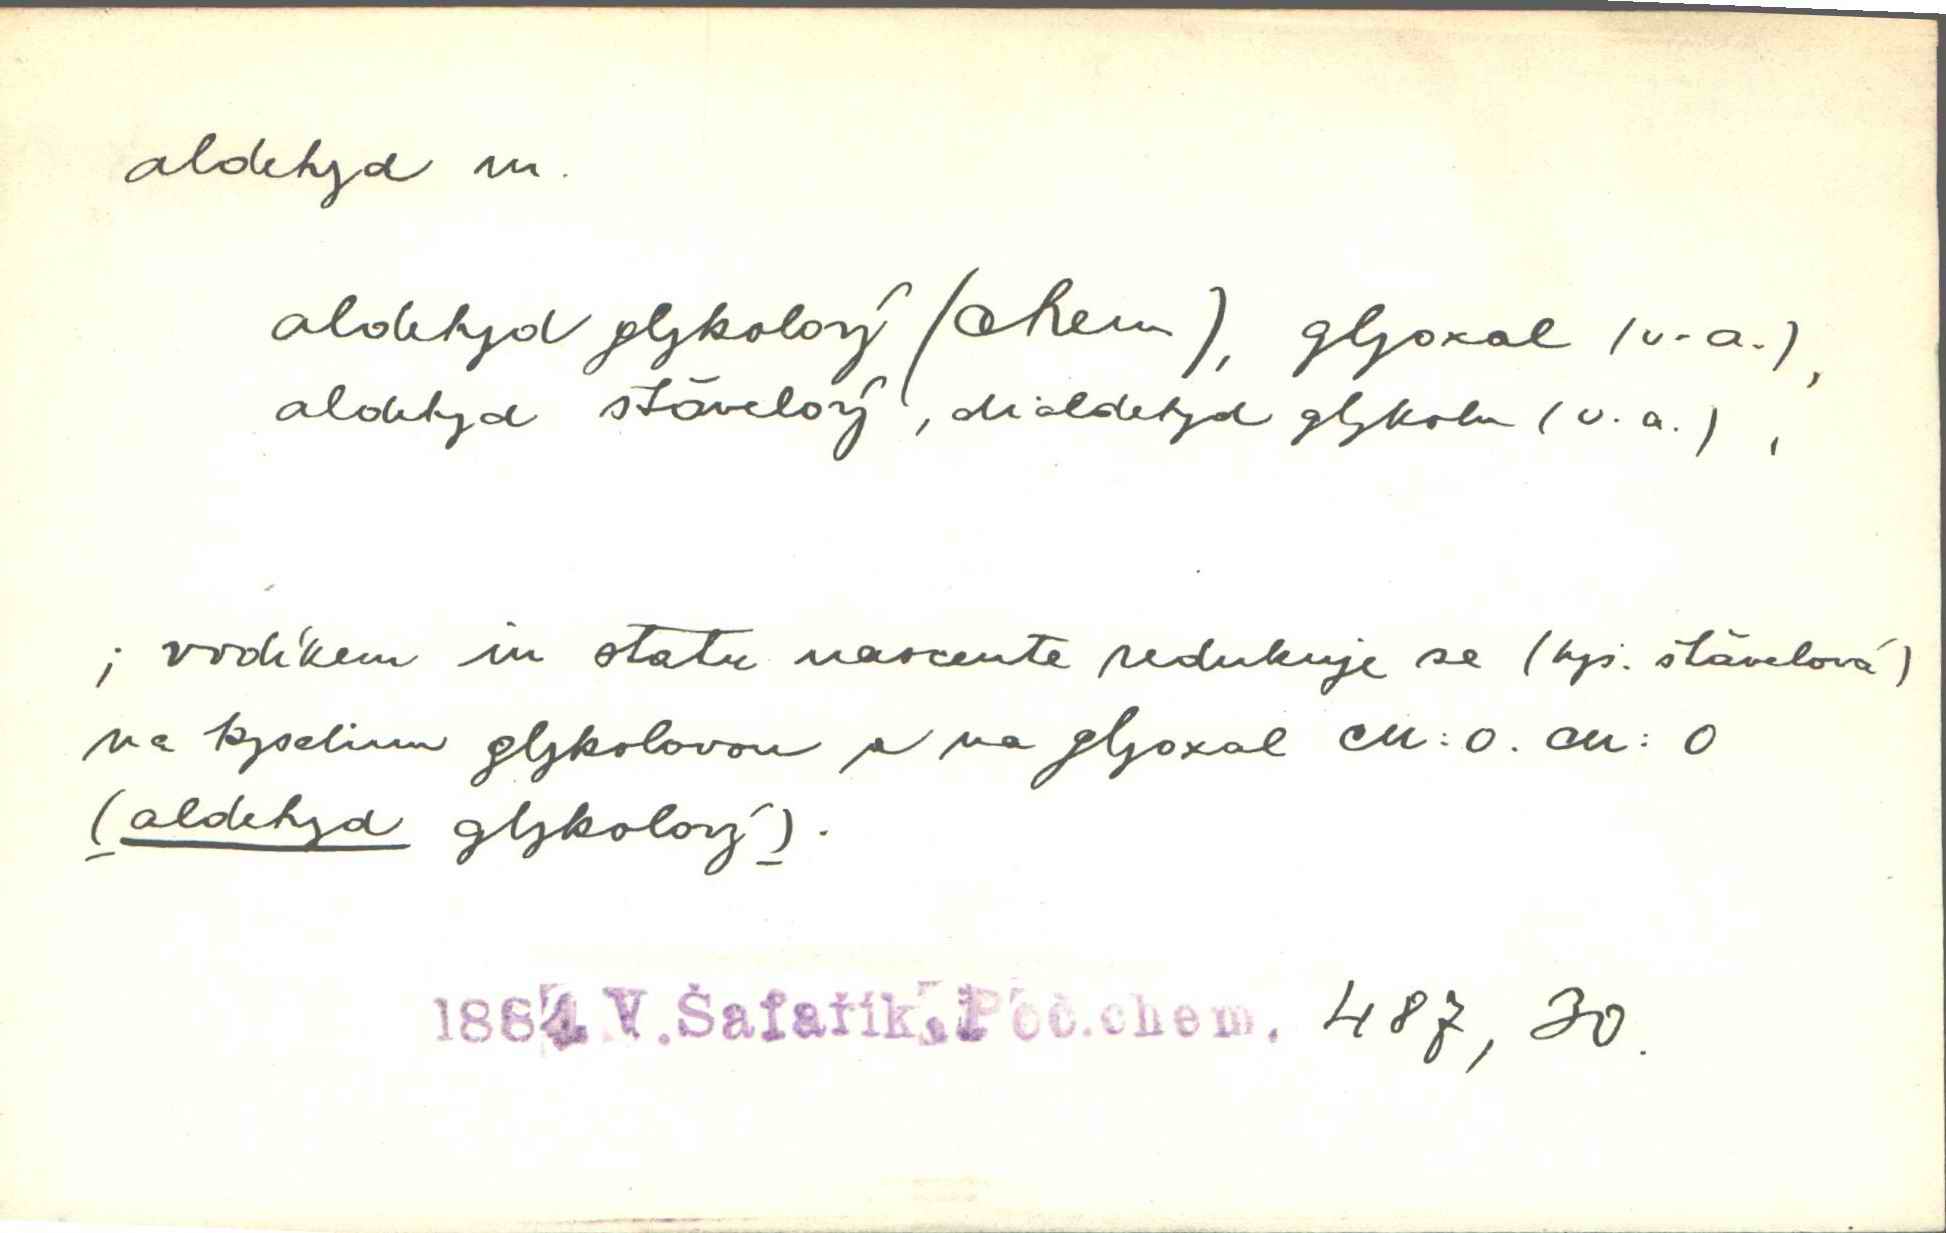 aldehyd m.
aldehyd glykolový (chem), glyoxal (v. a.),
aldehyd šťavelový, dialdehyd glykolu (v. a.),
; vodíkem in statu nascente redukuje se (kys. šťavelová)
na kyselinu glykolovou a na glyoxal CH:O. CH:O
(aldehyd glykolový).
V. Šafařík, Poč. chem. 487, 30.